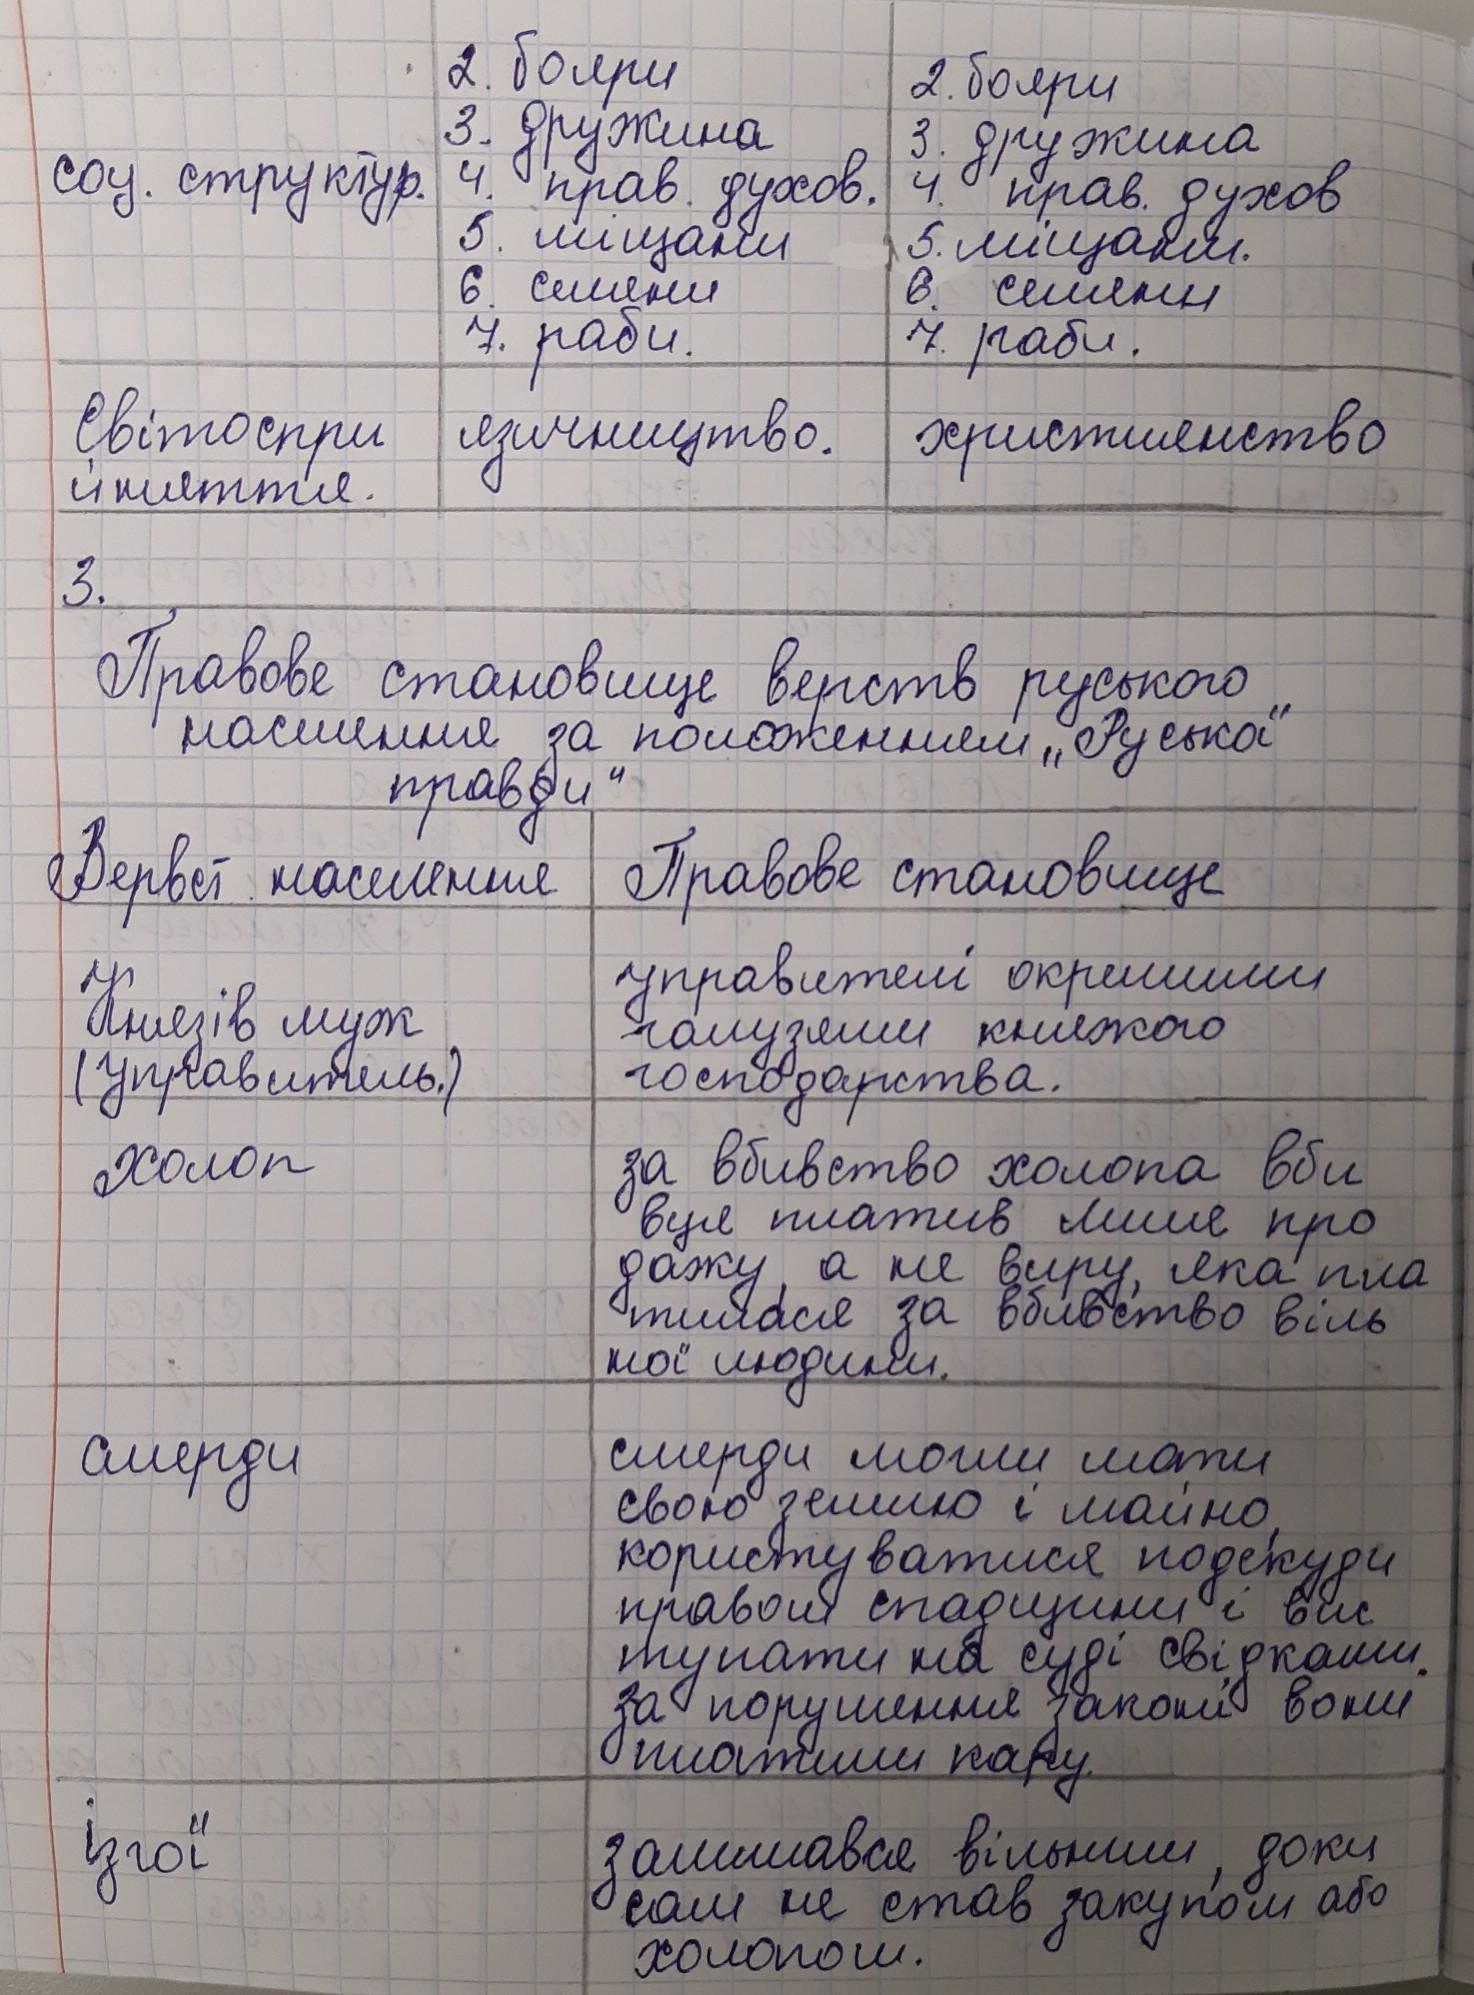 2. бояри
3. дружина
соц. структур.
4. прав. духов.
5. міщани
6. селяни
7. раби.
2. бояри
3. дружина
4. прав. духов
5. міщани.
6. селяни
7. раби.
Світоспри
йняття.
язичництво.
християнство
3.
Правове становище верств руського
населення за положенням „Руська
правди“
Вервст населення
Правове становище
Князів муж
(управитель.)
управителі окремими
галузями княжого
господарства.
холоп
за вбивство холопа вби
вця платив лише про
дажу, а не виру, яка пла
тилася за вбивство віль
ної людини.
смерди
смерди могли мати
свою землю і майно,
користуватися подекуди
правом спадщини і вис
тупати на суді свідками.
за порушення закони вони
платили кару.
ізгої
залишався вільним, доки
сам не став закупом або
холопом.